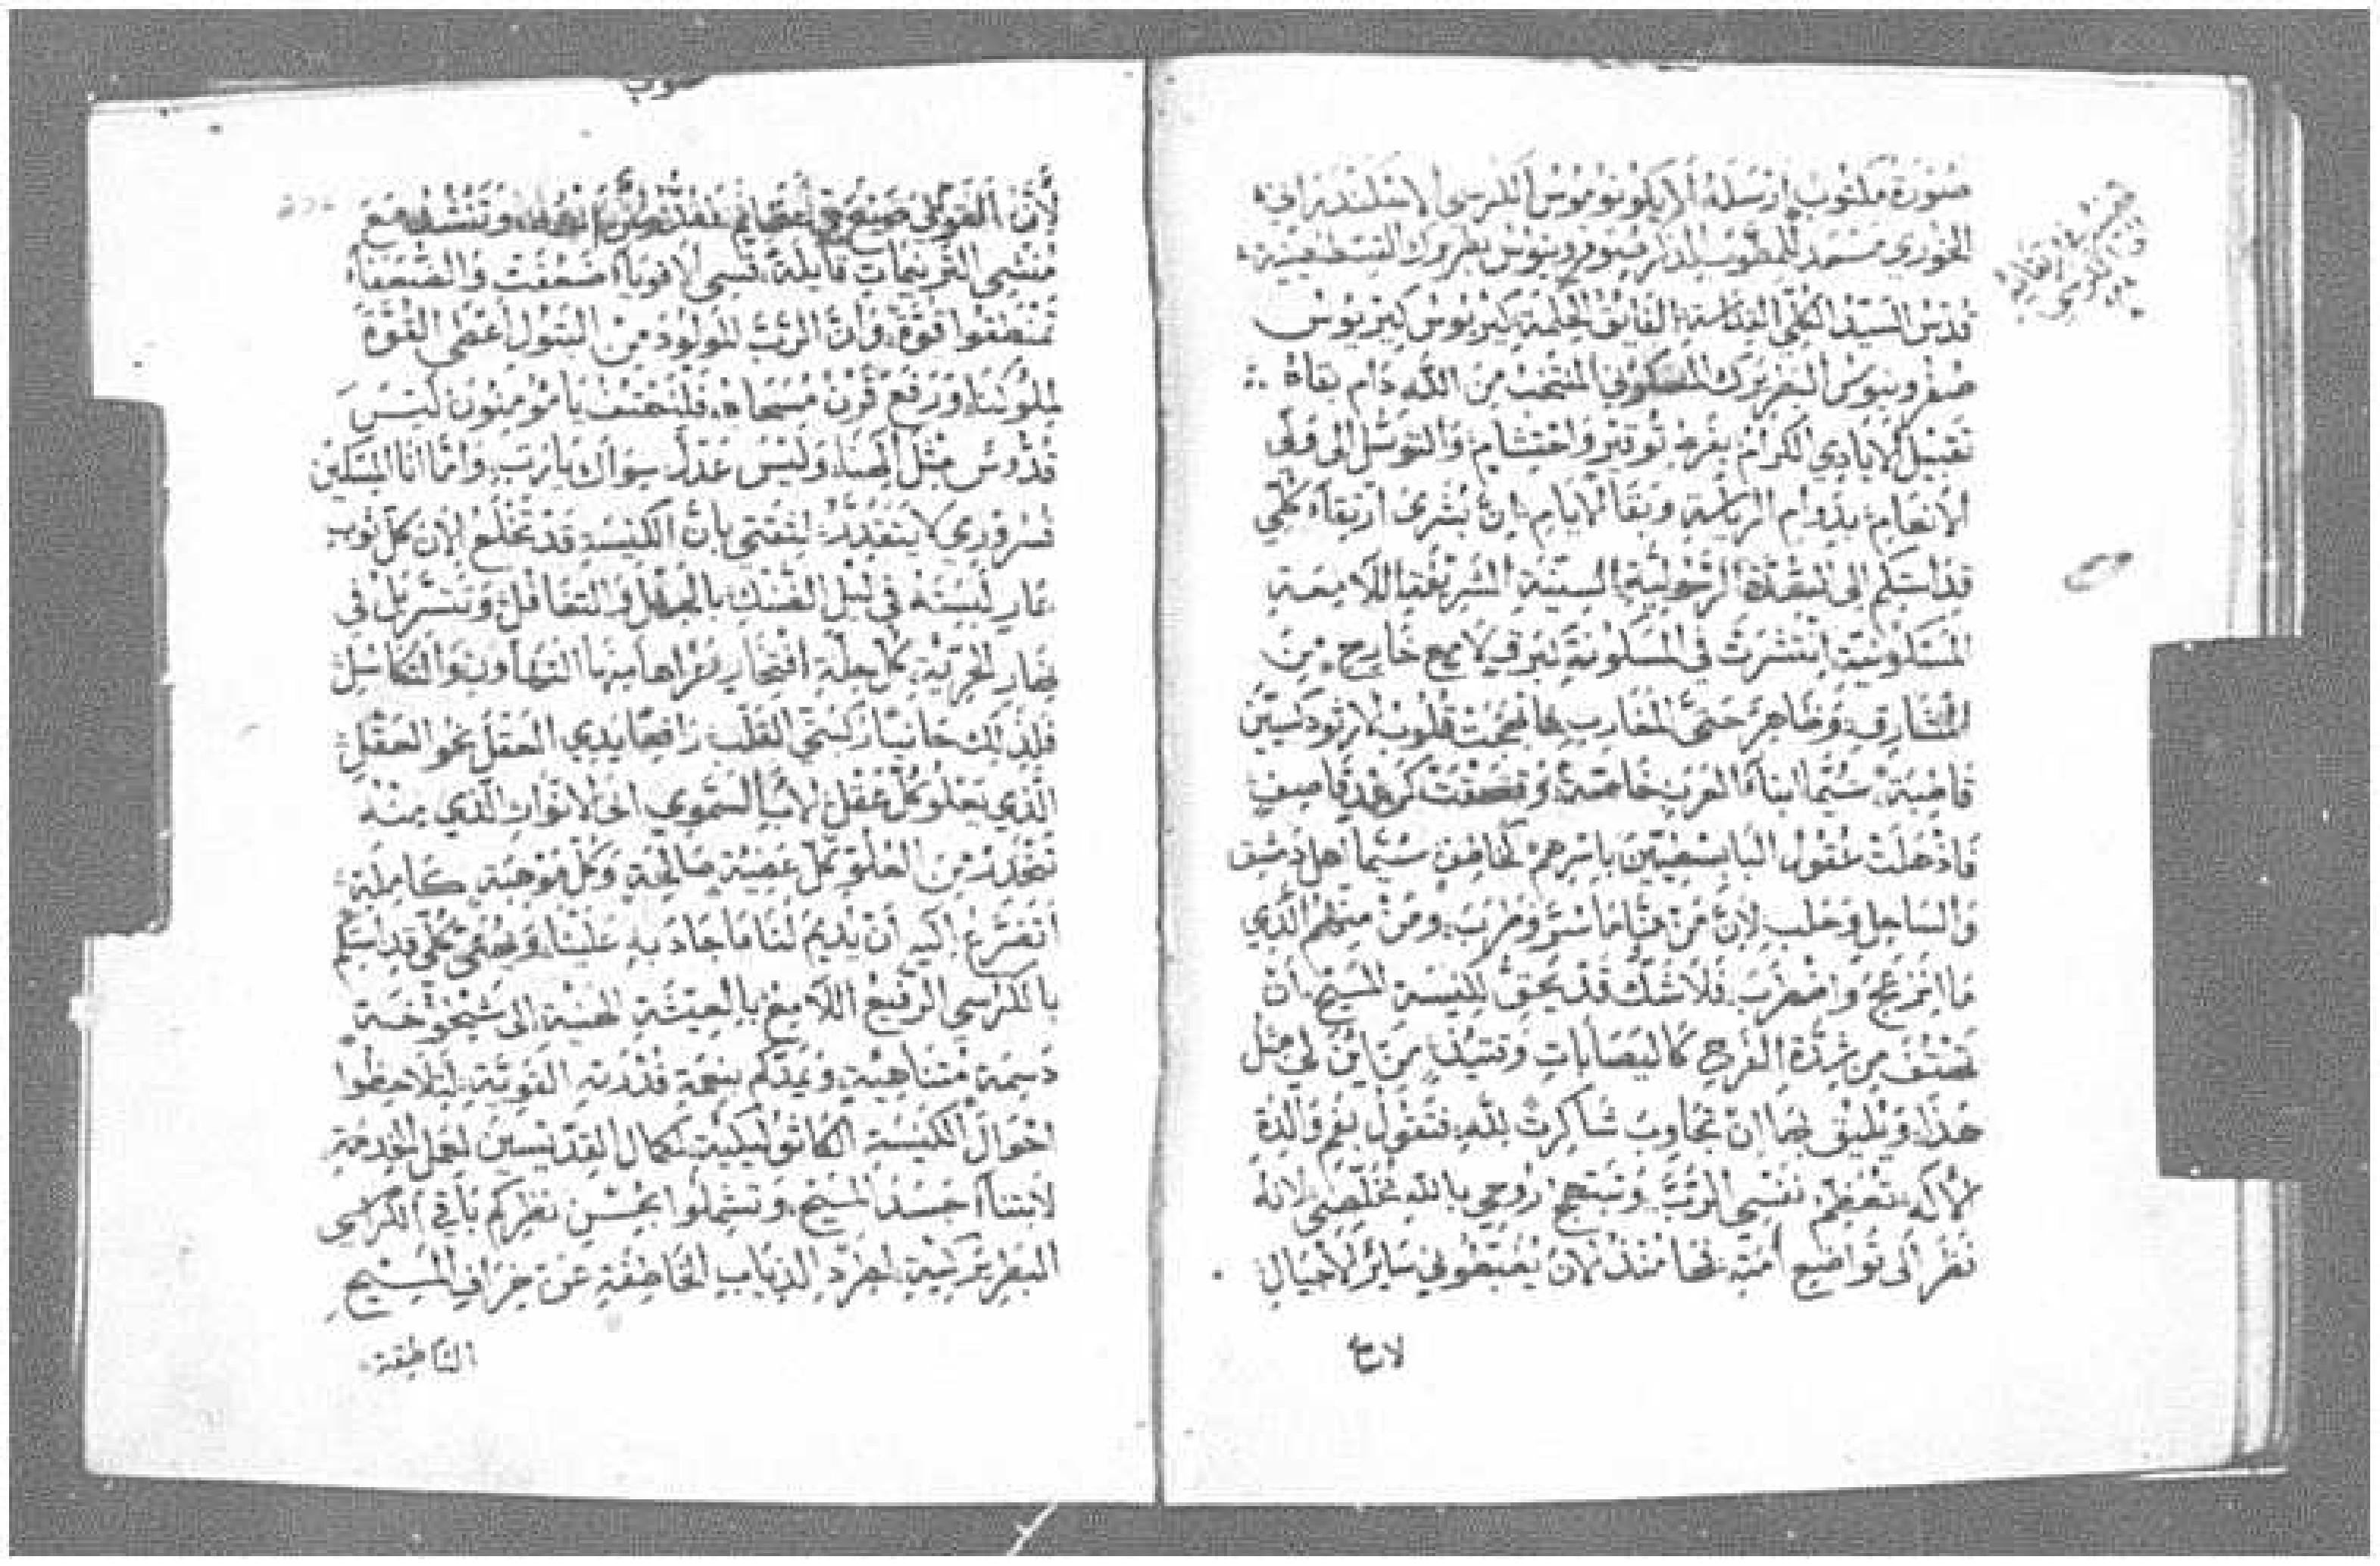 صورة مكتوب ارسله الايكونوموس الكرسي الاسكندراني
الخوري مسعد للمطوب الذكر صفرونيوس بطريرك القسطنطينية
قدس السيد الكلي القداسة الفايق الحكمة كيريوس كيريوس
صفرونيوس البطريرك المسكوني المنتخب من الله دام بقاه
تقبيل الايادي الكرام بفرط توقير واحتشام والتوسل الى ولي
الانعام بدوام الرياسة وبقا الايام ان بشرى ارتقاء كلي
قد استكم الى السدة الرحولية السنية الشريفة اللامعة
المسكونية انتشرت في المسكونة كبرق لامع خارج من
المشارق وظاهر حتى المغارب فابهجت قلوب الارثودكسيين
قاطبة سيما ابناء العرب خاصة وقصفت كرعد قاصف
فاذهلت عقول الباباسطيين باسرهم كخاطف سيما اهل دمشق
والساحل وحلب لان من منا ما سر وطرب ومن منهم الذي
ما انزعج واضطرب فلا شك قد يحق لكنيسة المسيح ان
تهتف من شدة الفرح كاليصابات وتنبذ من اين لي مثل
هذا ويليق بها ان تجاوب شاكرة لله فتقول بفم والدة
الاله تعظم نفسي الرب وتبتهج روحي بالله مخلصي لانه
نظر الى تواضع امته فها منذ الان يغبطوني ساير الاجيال
لان
لان القوي صنع بي عظايم وتنشد مع
منشي الترنيمات قايلة قسي الاقويا ضعفت والضعفا
تمنطقوا قوة وان الرب المولود من البتول اعطى القوة
لملوكنا ورفع قرن مسحاه فلنهتف يا مومنون ليس
قدوس مثل الهنا وليس عدل سواك يا رب واما انا المسكين
فسروري لا يتقدر لثقتي بان الكنيسة قد تخلع الان كل ثوب
عار لبسته في ليل الضنك بالجهل والتغافل وتتسربل في
نهار الحرية كل حلة افتخار عراها منها التهاون والتكاسل
فلذلك حانيا ركبتي القلب رافعا يدي العقل نحو العقل
الذي يعلو كل عقل لاب السموي ابي الانوار الذي منه
تتحدر من العلو كل عطية صالحة وكل موهبة كاملة
اتضرع اليه ان يديم لنا ما جاد به علينا ويحفظ كلي قداستكم
بالكرسي الرفيع اللامع بالعيشة الهنية الى شيخوخة
دسمة متناهية ويمدكم بنعمة قدرته القوية لتلاحظوا
احوال الكنيسة الكاثوليكية لكمال القديسين لعمل الخدمة
لابتناء جسد المسيح وتشملوا بحسن نظركم باقي الكراسي
البطريركية لطرد الذياب الخاطفة عن خراف المسيح
الناطقة